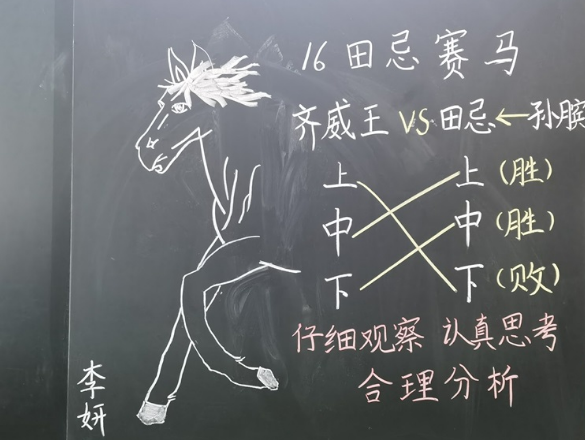 16 田忌赛马
齐威王 VS 田忌←孙膑
上 上（胜）
中 中（胜）
下 下（败）
仔细观察 认真思考
合理分析
李妍